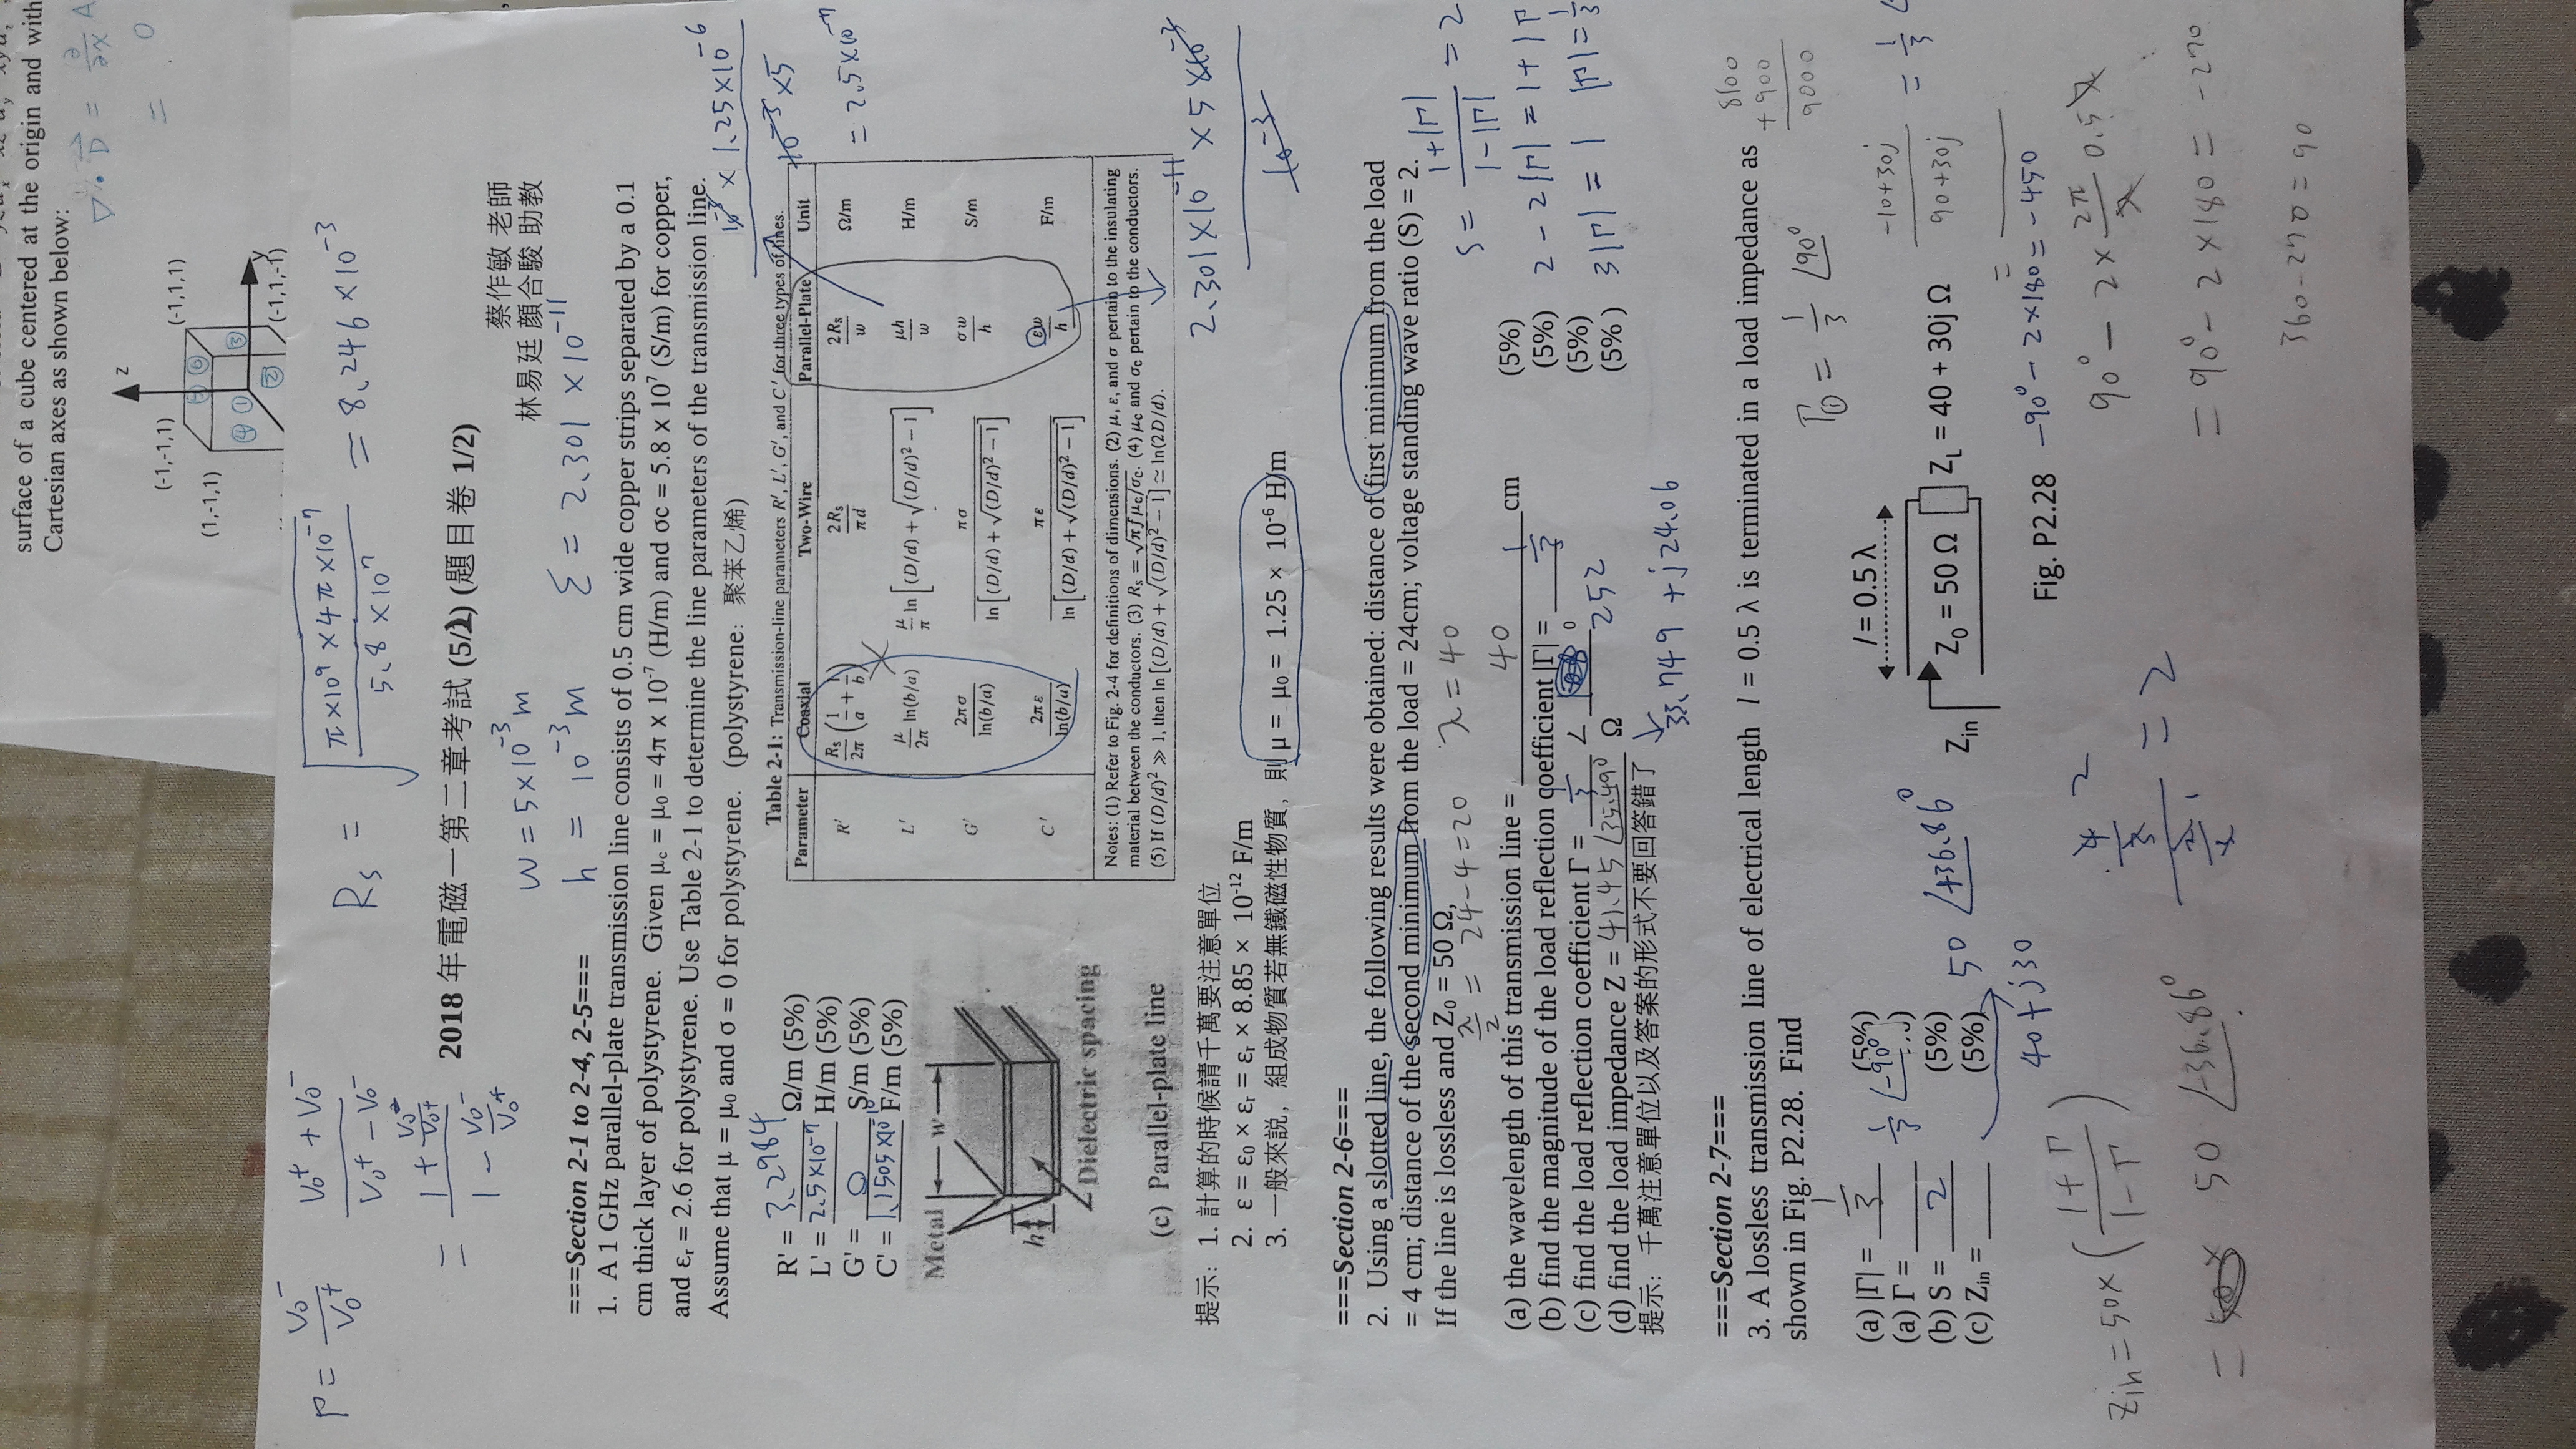 surface of a cube centered at the origin and with
Cartesian axes as shown below:
∇ · D = ∂/∂x A
= 0
z
(-1,-1,1)
(-1,1,1)
(1,-1,1)
④ ① ⑥ ③ ②
y
(-1,1,-1)
Γ = V₀⁻/V₀⁺
(V₀⁺ + V₀⁻)/(V₀⁺ − V₀⁻)
Rs = √(π×10⁹ × 4π×10⁻⁷ / 5.8×10⁷) = 8.246×10⁻³
2018 年電磁一第二章考試 (5/2) (題目卷 1/2)
蔡作敏 老師
林易廷 顏合駿 助教
w = 5×10⁻³ m
h = 10⁻³ m
ε = 2.301 ×10⁻¹¹
===Section 2-1 to 2-4, 2-5===
1. A 1 GHz parallel-plate transmission line consists of 0.5 cm wide copper strips separated by a 0.1
cm thick layer of polystyrene. Given μc = μ0 = 4π x 10⁻⁷ (H/m) and σc = 5.8 x 10⁷ (S/m) for copper,
and εr = 2.6 for polystyrene. Use Table 2-1 to determine the line parameters of the transmission line.
Assume that μ = μ0 and σ = 0 for polystyrene. (polystyrene：聚苯乙烯)
10⁻³ × 1.25×10⁻⁶
10⁻³ ×5
= 2.5×10⁻⁷
R' = 3.2984 Ω/m (5%)
L' = 2.5×10⁻⁷ H/m (5%)
G' = 0 S/m (5%)
C' = 1.1505×10⁻¹⁰ F/m (5%)
Table 2-1: Transmission-line parameters R′, L′, G′, and C′ for three types of lines.
Parameter Coaxial Two-Wire Parallel-Plate Unit
R′ Rs/2π (1/a + 1/b) 2Rs/πd 2Rs/w Ω/m
L′ μ/2π ln(b/a) μ/π ln [(D/d) + √((D/d)² − 1)] μh/w H/m
G′ 2πσ/ln(b/a) πσ/ln [(D/d) + √((D/d)² − 1)] σw/h S/m
C′ 2πε/ln(b/a) πε/ln [(D/d) + √((D/d)² − 1)] εw/h F/m
Notes: (1) Refer to Fig. 2-4 for definitions of dimensions. (2) μ, ε, and σ pertain to the insulating
material between the conductors. (3) Rs = √(πfμc/σc). (4) μc and σc pertain to the conductors.
(5) If (D/d)² ≫ 1, then ln [(D/d) + √((D/d)² − 1)] ≃ ln(2D/d).
Metal
w
h
Dielectric spacing
(c) Parallel-plate line
2.301×10⁻¹¹ ×5×10⁻³
10⁻³
提示：1. 計算的時候請千萬要注意單位
2. ε = ε0 × εr = εr × 8.85 × 10⁻¹² F/m
3. 一般來説，組成物質若無鐵磁性物質，則 μ = μ0 = 1.25 × 10⁻⁶ H/m
===Section 2-6===
2. Using a slotted line, the following results were obtained: distance of first minimum from the load
= 4 cm; distance of the second minimum from the load = 24cm; voltage standing wave ratio (S) = 2.
If the line is lossless and Z0 = 50 Ω,
λ/2 = 24-4=20 λ = 40
S = (1+|Γ|)/(1-|Γ|) = 2
(a) the wavelength of this transmission line = 40 cm (5%)
(b) find the magnitude of the load reflection coefficient |Γ| = 1/3 (5%)
2 - 2|Γ| = 1+|Γ
(c) find the load reflection coefficient Γ = 1/3 ∠ ° (5%)
252
3|Γ| = 1 |Γ|= 1/3
(d) find the load impedance Z = 41.45 ∠35.49° Ω (5% )
提示：千萬注意單位以及答案的形式不要回答錯了
33.749 + j24.06
===Section 2-7===
3. A lossless transmission line of electrical length l = 0.5 λ is terminated in a load impedance as
shown in Fig. P2.28. Find
8100
+ 900
9000
Γ① = 1/3 ∠90°
(a) |Γ| = 1/3 (5%)
(a) Γ = 1/3 ∠-90°
(b) S = 2 (5%)
(c) Zin = (5%)
50 ∠+36.86°
40 + j30
l = 0.5 λ
Zin
Z0 = 50 Ω
ZL = 40 + 30j Ω
(-10+30j)/(90+30j) = 1/3 ∠
=
Fig. P2.28
-90° - 2×180 = -450
Zin = 50× ((1+Γ)/(1-Γ))
= 50 ∠-36.86°
= 2
90° - 2× 2π/λ 0.5λ
= 90° - 2×180 = -270
360-270 = 90